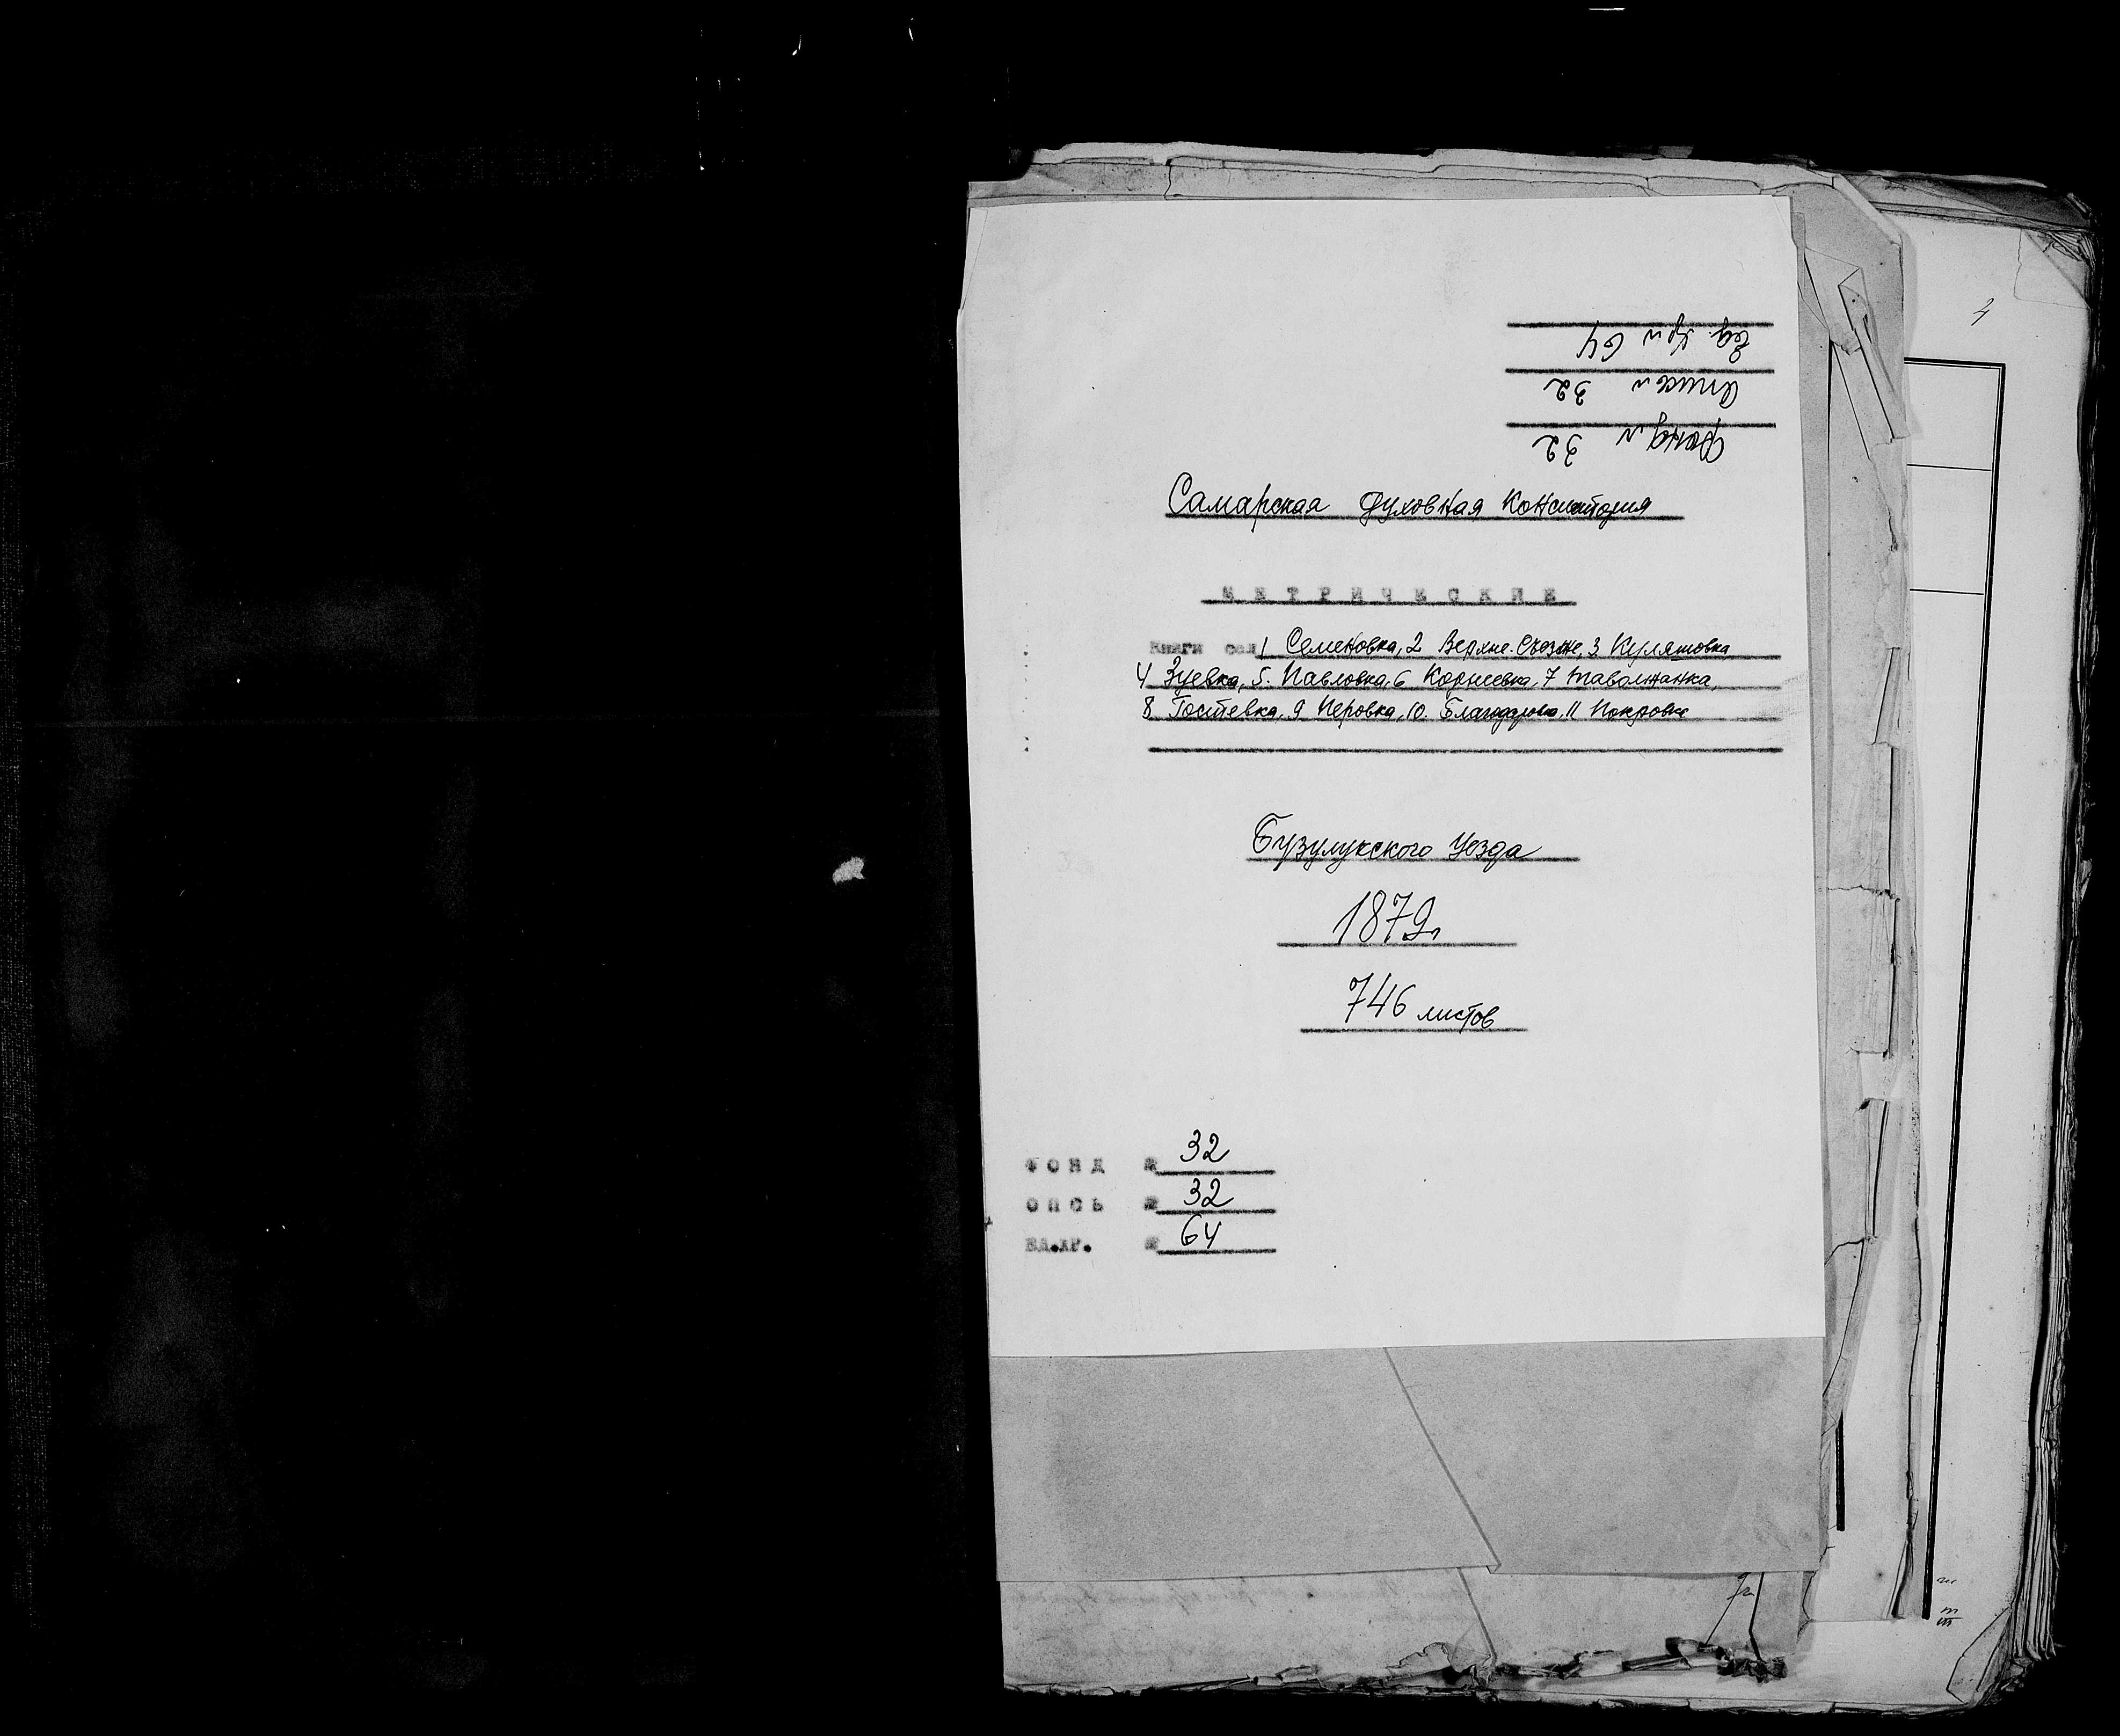 Фонд № 32
Опись № 32
Ед. хр. № 64
Самарская духовная Консистория
МЕТРИЧЕСКИЕ
Книги сел 1 Семеновка, 2 Верхне-Съезже, 3 Куляшовка
4 Зуевка, 5. Павловка, 6 Корнеевка, 7 Таволжанка,
8 Гостевка, 9 Перовка, 10. Благодаровка, 11 Покровка
Бузулукского Уезда
1879г
746 листов
ФОНД № 32
ОПСЬ № 32
ЕД.ХР. № 64